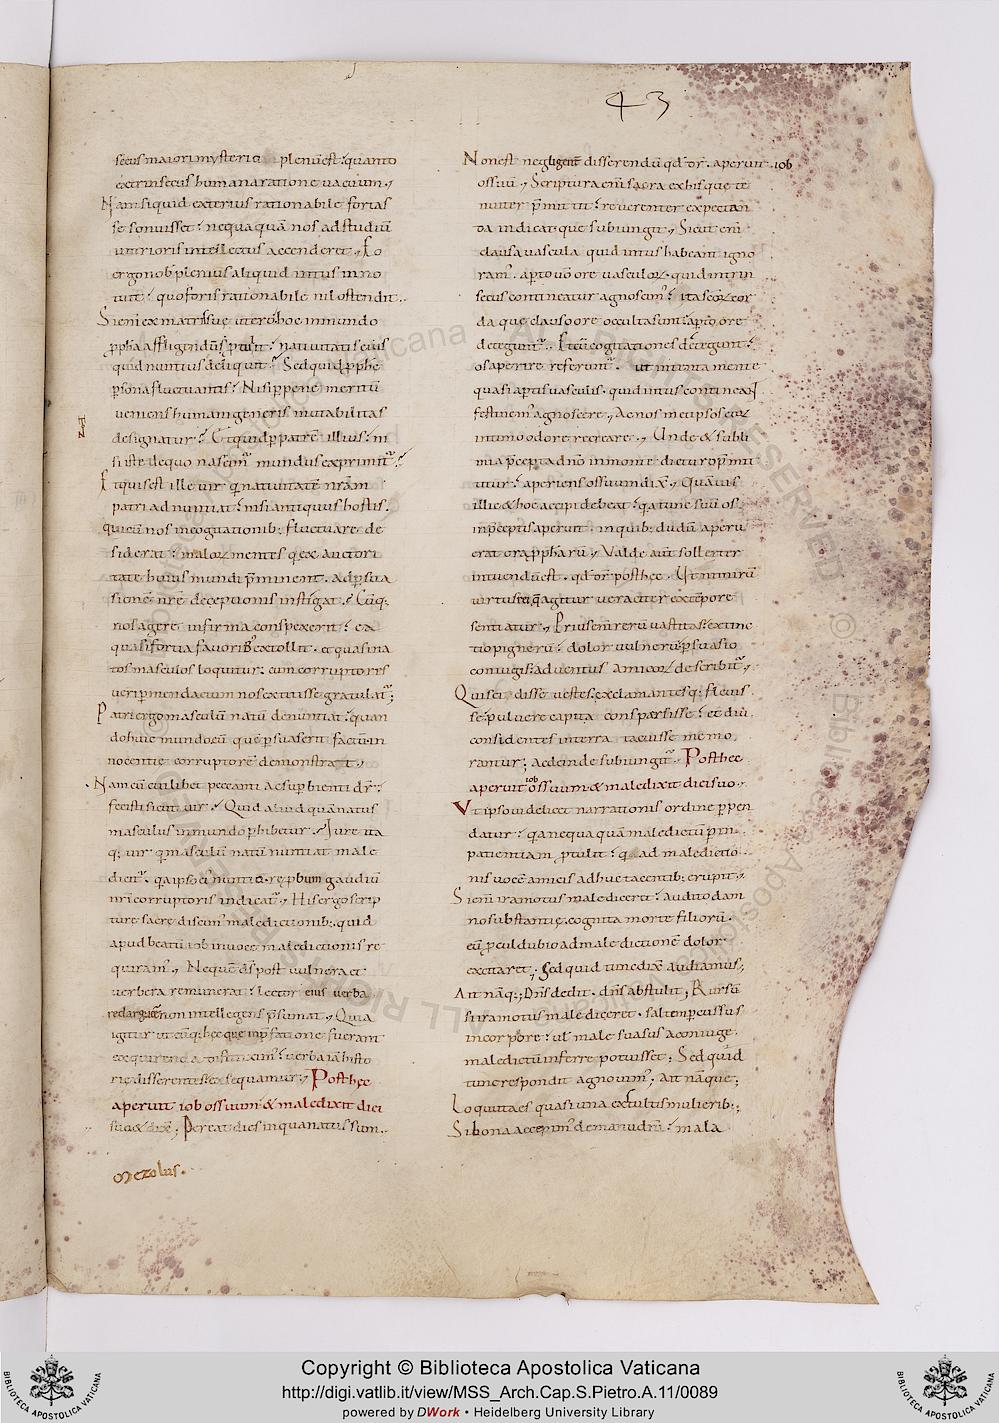 43
secus maiori mysterio plenū est: quanto
extrinsecus humana ratione vacuum.
Nam si quid exterius rationabile fortas
se sonuisset: nequaquā nos ad studiū
interioris intellectus accenderet. Eo
ergo nob plenius aliquid intus inno
tuit: quo foris rationabile nil ostendit.
quid nuntius deliquit? Sed quid
veniens humani generis mutabilitas
designatur? Et quid p patrē illius: ni
si iste de quo nascim mundus exprimit?
Et quis est ille vir q nativitatē nrām
patri adnuntiat: nisi antiquus hostis.
qui cū nos in cogitationib: fluctuare de
siderat: malorum mentes q ex auctori
tate huius mundi pminent. ad psua
sionē nrē deceptionis instigat. Cūq:
nos agere infirma conspexerit: ea
quasi fortia favorib extollit. et quasi na
tos masculos loquitur: cum corruptores
veri p mendacium nos extitisse gratulat;
Patri ergo masculū natū denuntiat: quan
do huic mundo eū que psuaserit factū in
nocentie corruptorē demonstrat.
Nam cū cuilibet peccanti ac supbienti dr:
fecisti sicut vir. Quid aliud quā natus
masculus in mundo phibetur. Iure ita
q; vir q masculū natū nuntiat male
nri corruptoris indicat. His ergo scrip
ture sacre discim maledictionib: quid
apud beatū iob in voce maledictionis re
quiram. Ne quem ds post vulnera et
verbera remunerat: lector eius verba
redarguere non intellegens psumat. Quia
igitur utcūq: hec que in pfatione fuerant
exquirenda distinxim: verba iā histo
rie disserentes exsequamur. Post hec
aperuit iob os suum & maledixit diei
suo & dix; Pereat dies in qua natus sum.
mezolus.
Non est neglegenter disserendū qd dr. aperuit iob
os suū. Scriptura eni sacra ex his que te
nuiter pmittit: reverenter expectan
da indicat que subiungit. Sicut eni
clausa vascula quid intus habeant igno
ram. apto vō ore vasculor quid intrin
secus contineatur agnoscim: ita scor cor
da que clauso ore occulta sunt: apto ore
deteguntr. Et cū cogitationes detegunt:
os aperire referuntr. ut intenta mente
quasi aptis vasculis. quid intus contineat
festinem agnoscere. Ac nos metipsos eor
intimo odore recreare. Unde & subli
mia pcepta dno in monte dicturo pmit
titur: aperiens os suum dix. Quāvis
illic & hoc accipi debeat: q a tunc suū os
in pceptis aperuit. in quib: dudū aperu
erat ora ppharū. Valde autē sollerter
intuendū est. qd dr post hec. Ut nimirū
virtus rei q agitur veraciter ex tempore
sentiatur. Prius eni rerū vastitas: extinc
tio pignerū: dolor vulnerū: psuasio
coniugis: adventus amicor describit.
Qui scidisse vestes: exclamantesq: flevis
se: pulvere capita consparsisse: et diu
considentes in terra tacuisse memo
rantur; ac deinde subiungit. Post hec
aperuit iob os suum & maledixit diei suo.
Ut ipso videlicet narrationis ordine ppen
datur: q a nequaquā maledictū p in
patientiam ptulit: q ad maledictio
nis vocē amicis adhuc tacentib: erupit.
Si eni iram motus maledicere: audito dam
no substantie, cognita morte filiorū.
eū pculdubio ad maledictionē dolor
excitaret; Sed quid tunc dixit audiamus;
Ait nāq:; Dns dedit. dns abstulit; Rursū
si iram motus malediceret. saltem pcussus
in corpore: vel male suasus a coniuge.
maledictū inferre potuisset; Sed quid
tunc respondit agnovim; Ait nāque;
Locuta es quasi una ex stultis mulierib:;
Si bona accepim de manu dni: mala
Copyright © Biblioteca Apostolica Vaticana
http://digi.vatlib.it/view/MSS_Arch.Cap.S.Pietro.A.11/0089
powered by DWork • Heidelberg University Library
BIBLIOTECA APOSTOLICA VATICANA
BIBLIOTECA APOSTOLICA VATICANA